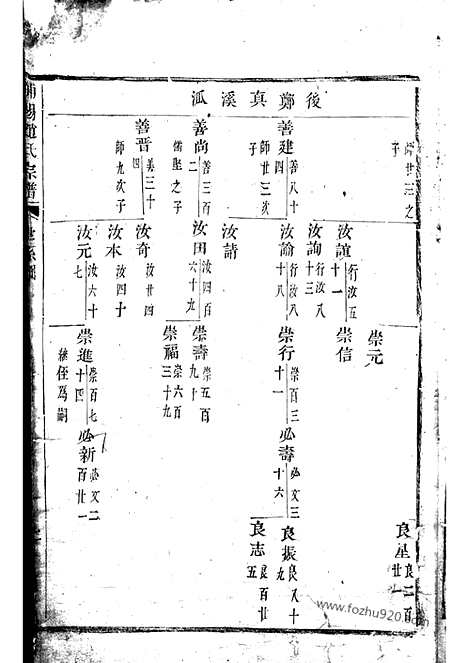 後鄭真溪派
師廿三之子
崇元
良星 良二百廿一
善建 善八十四
師廿三次子
汝誼 行汝五十一
崇信
汝詢 行汝八十三
汝諭 行汝八十八
崇行 崇百三十一
必壽 必文三十六
良振 良八十九
良志 良百廿五
汝請
善尚 善三百二
儒聖之子
汝田 汝四百六十九
崇壽 崇五百九十
崇福 崇六百三十九
善晋 善三十四
師九次子
汝奇 汝廿四
汝本 汝四十
汝元 汝六十七
崇進 崇百七十四
繼侄為嗣
必新 必文二百廿一
浦陽趙氏宗譜
世系圖
www.fozhu920.com